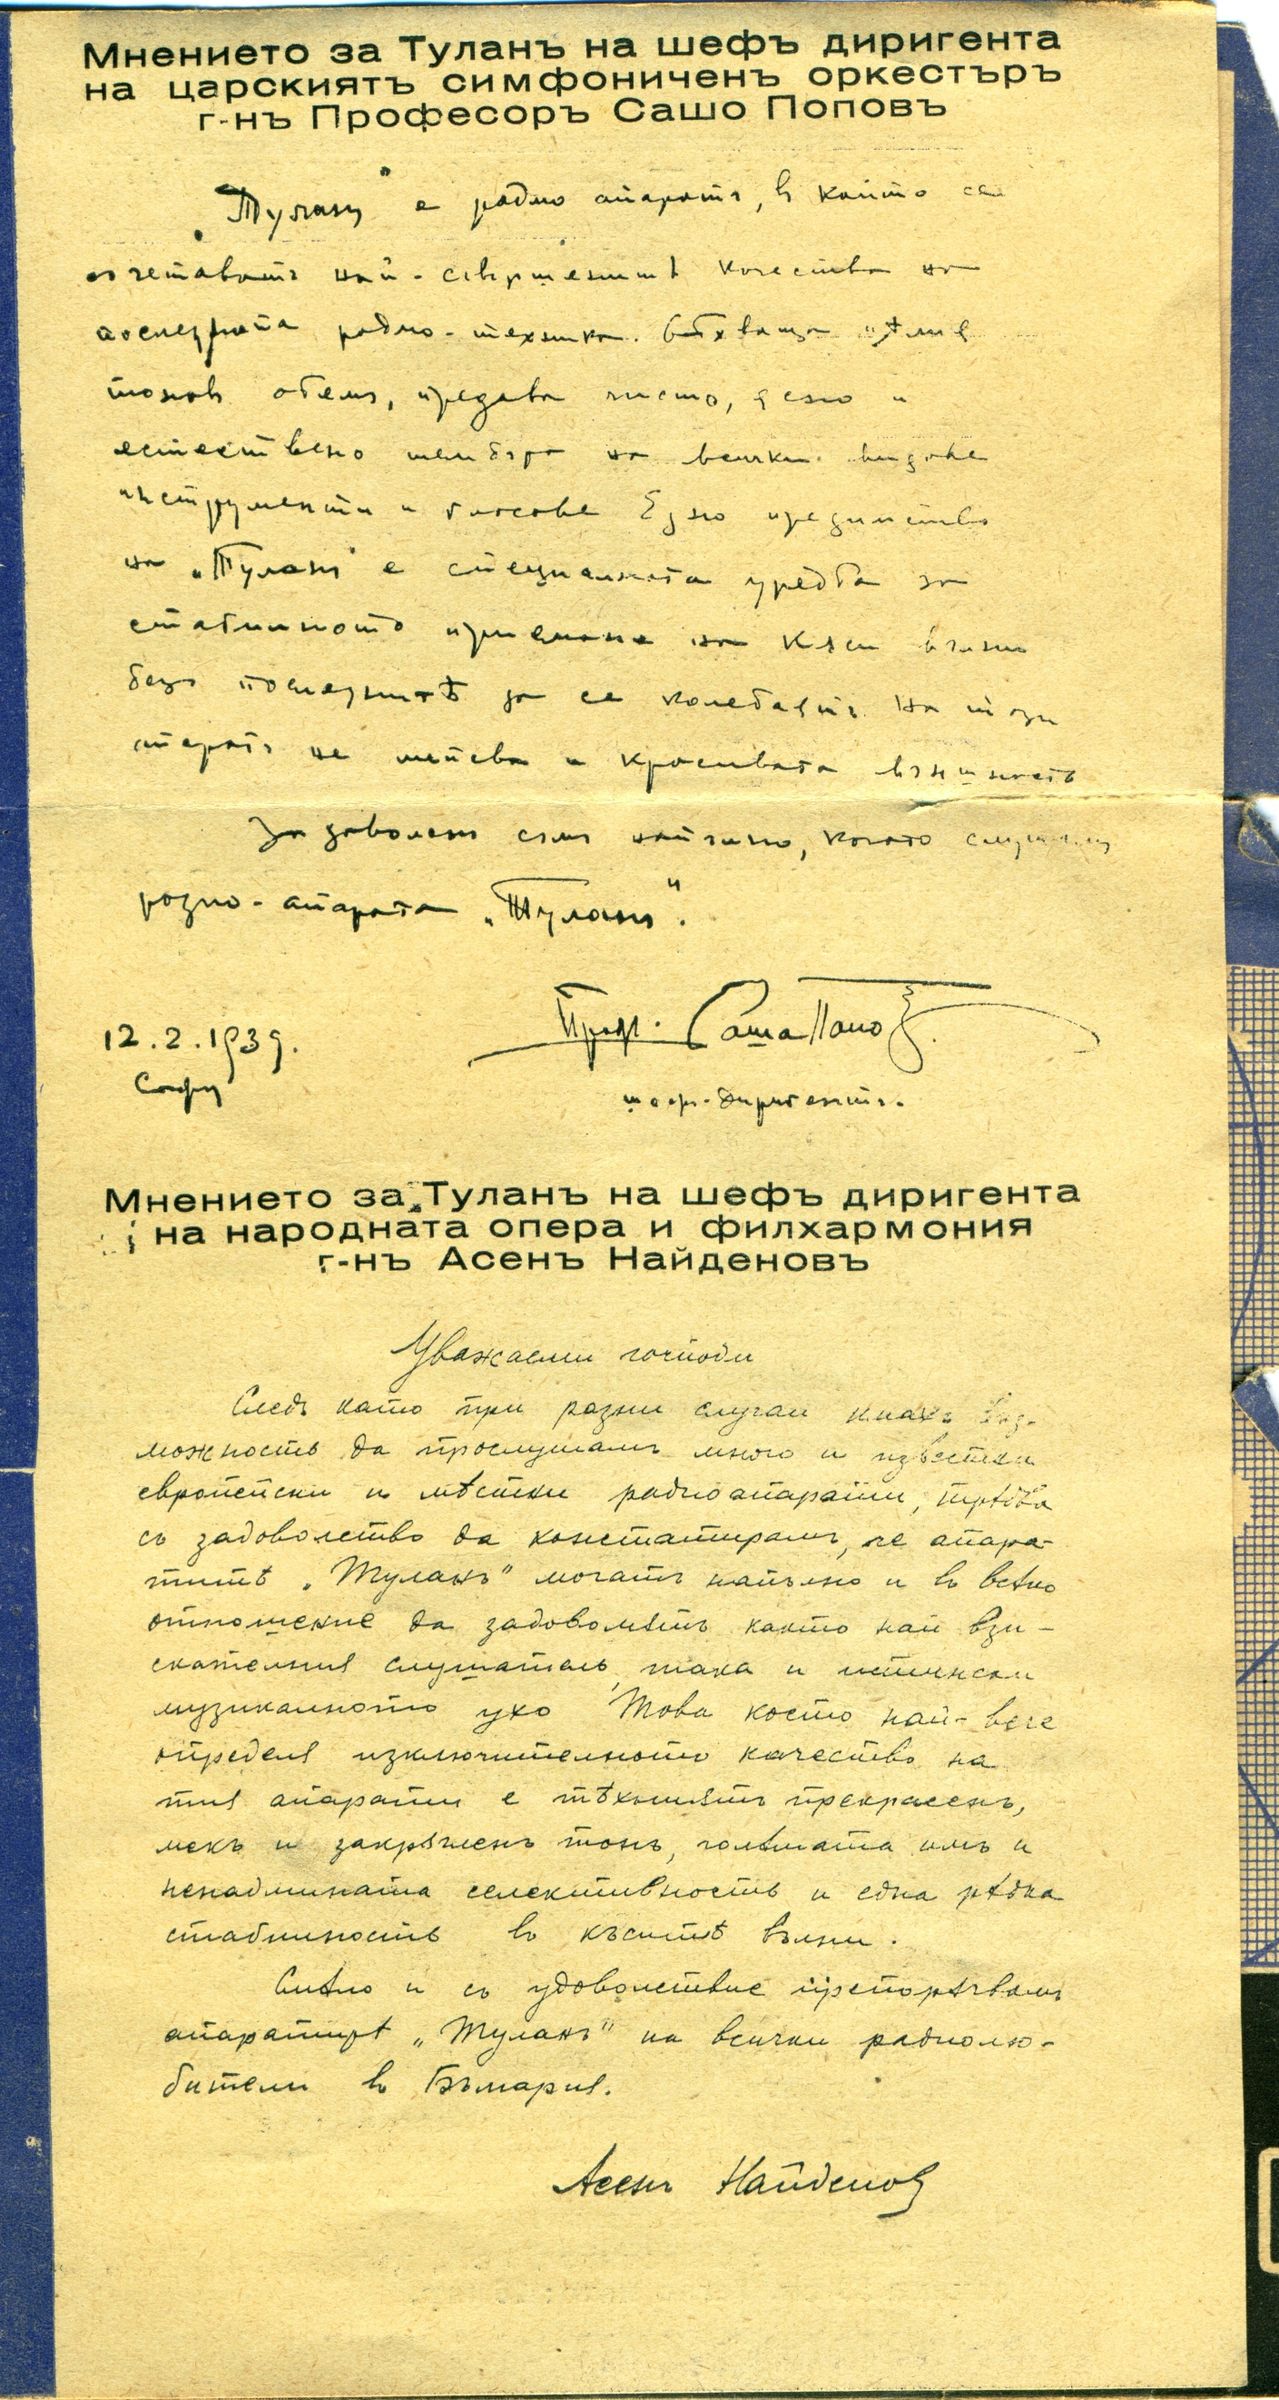 Мнението за Туланъ на шефъ диригента
на царскиятъ симфониченъ оркестъръ
г-нъ Професоръ Сашо Поповъ
„Туланъ" е радио апаратъ, въ който се
съчетаватъ най-съвършенитѣ качества на
последната радио-техника. Обхваща цѣлия
тоновъ обемъ, предава чисто, ясно и
естествено тембъра на всички видове
инструменти и гласове Едно предимство
на „Туланъ" е специалната уредба за
стабилното приемане на къси вълни
безъ последнитѣ да се колебаятъ. На този
апаратъ не липсва и красивата външность
задоволенъ съмъ напълно, когато слушамъ
радио-апарата „Туланъ".
12.2.1939.
София
Проф. Саша Поповъ
шеф-диригентъ.
Мнението за „Туланъ на шефъ диригента
на народната опера и филхармония
г-нъ Асенъ Найденовъ
Уважаеми господи
Следъ като при разни случаи имахъ въз-
можность да прослушамъ много и известни
европейски и мѣстни радиоапарати, трѣбва
съ задоволство да констатирамъ, че апара-
титѣ „Туланъ" могатъ напълно и въ всѣко
отношение да задоволятъ както най взи-
скателния слушатель, така и истински
музикалното ухо Това което най-вече
определя изключителното качество на
тия апарати е тѣхниятъ прекрасенъ,
мекъ и закръгленъ тонъ, голѣмата имъ и
ненадмината селективность и една рѣдка
стабилность въ къситѣ вълни.
Смѣло и съ удоволствие препоръчвамъ
апаратитѣ „Туланъ" на всички радиолю-
бители въ България.
Асенъ Найденовъ